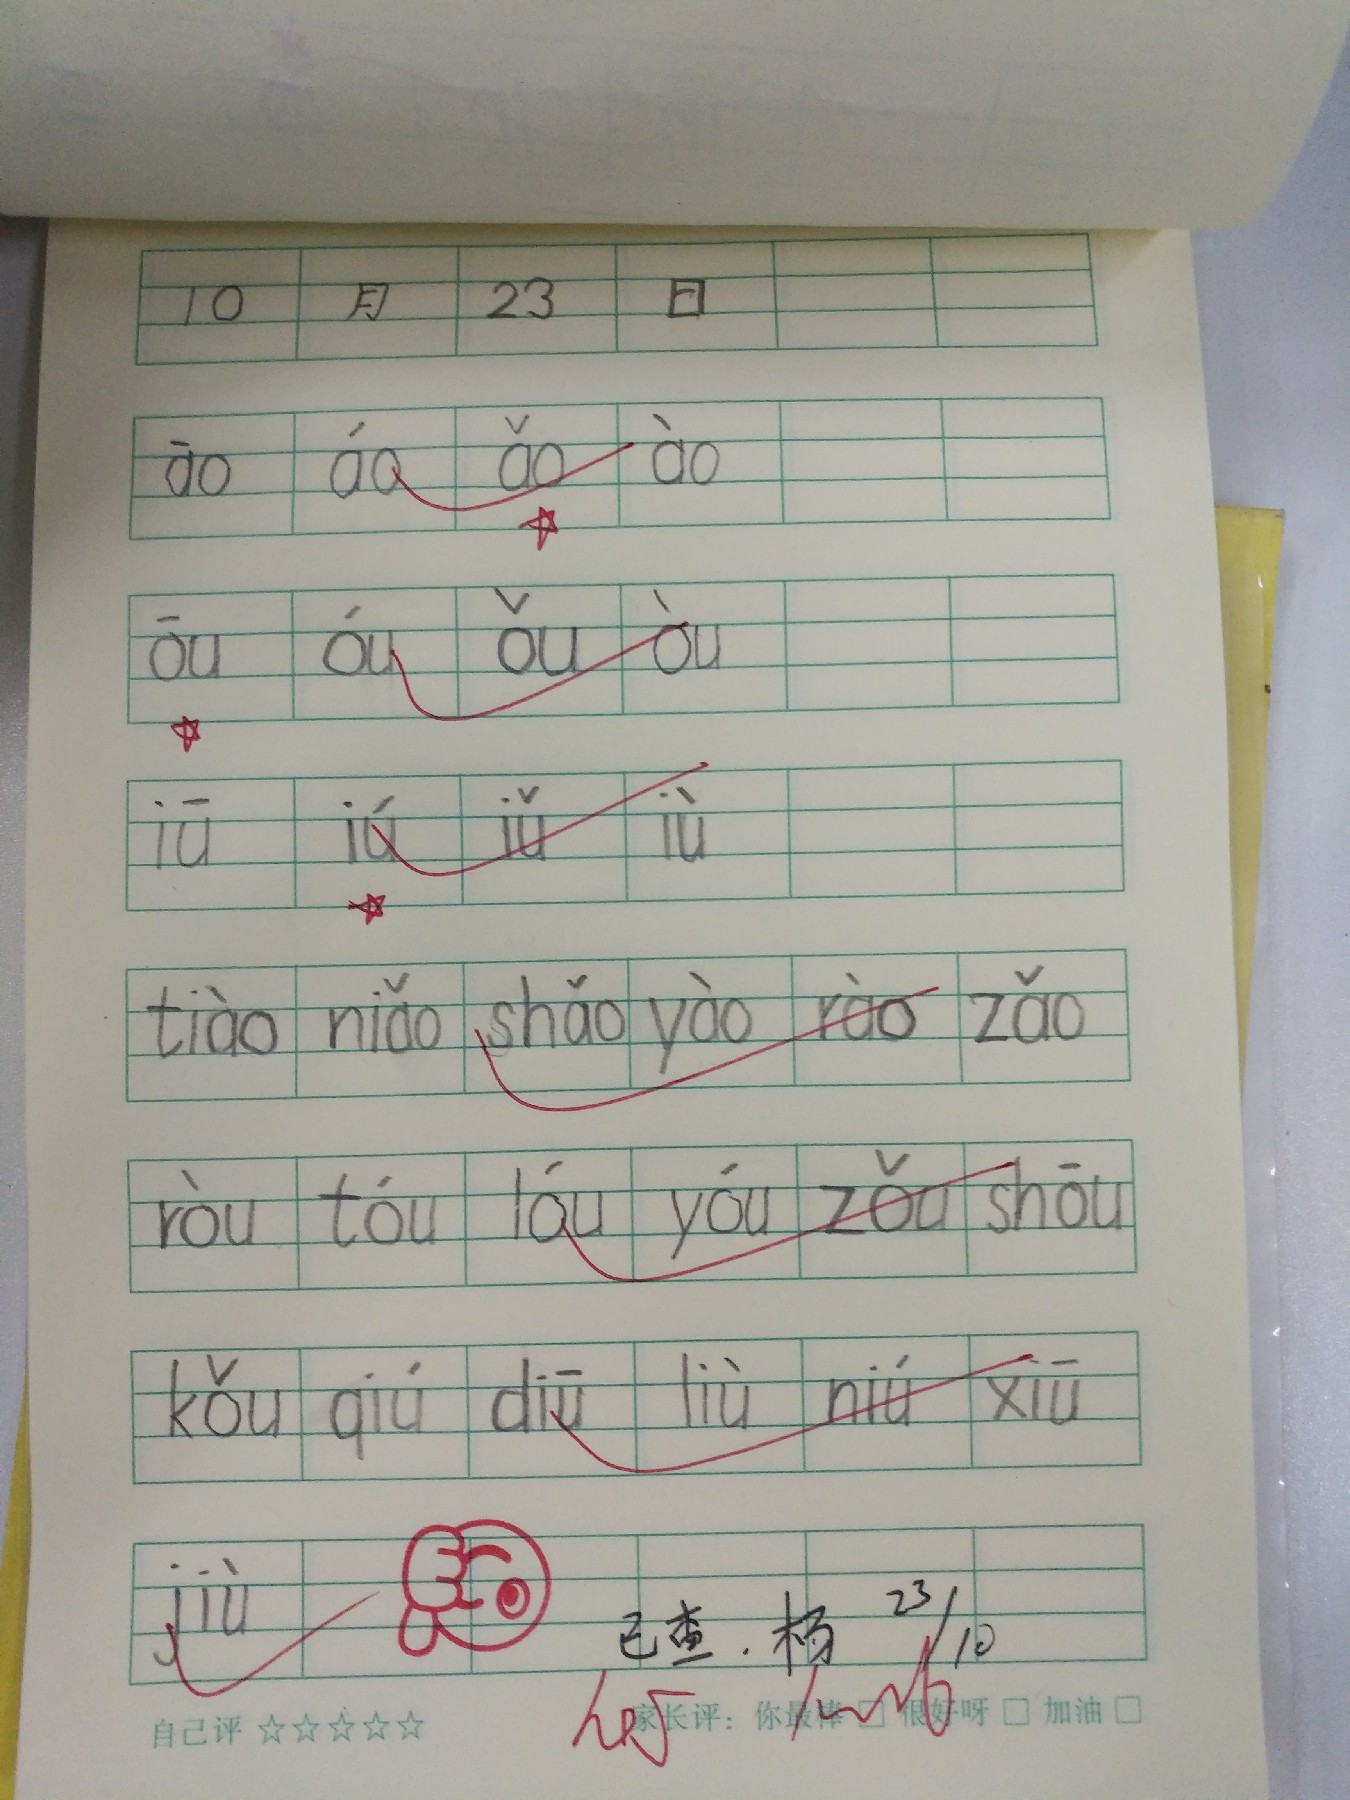 10 月 23 日
āo áo ǎo ào
ōu óu ǒu òu
iū iú iǔ iù
tiào niǎo shǎo yào rào zǎo
ròu tóu lóu yóu zǒu shōu
kǒu qiú diū liù niú xiū
jiù
已查.杨 23/10
自己评 ☆☆☆☆☆ 家长评：你最棒 □ 很好呀 □ 加油 □